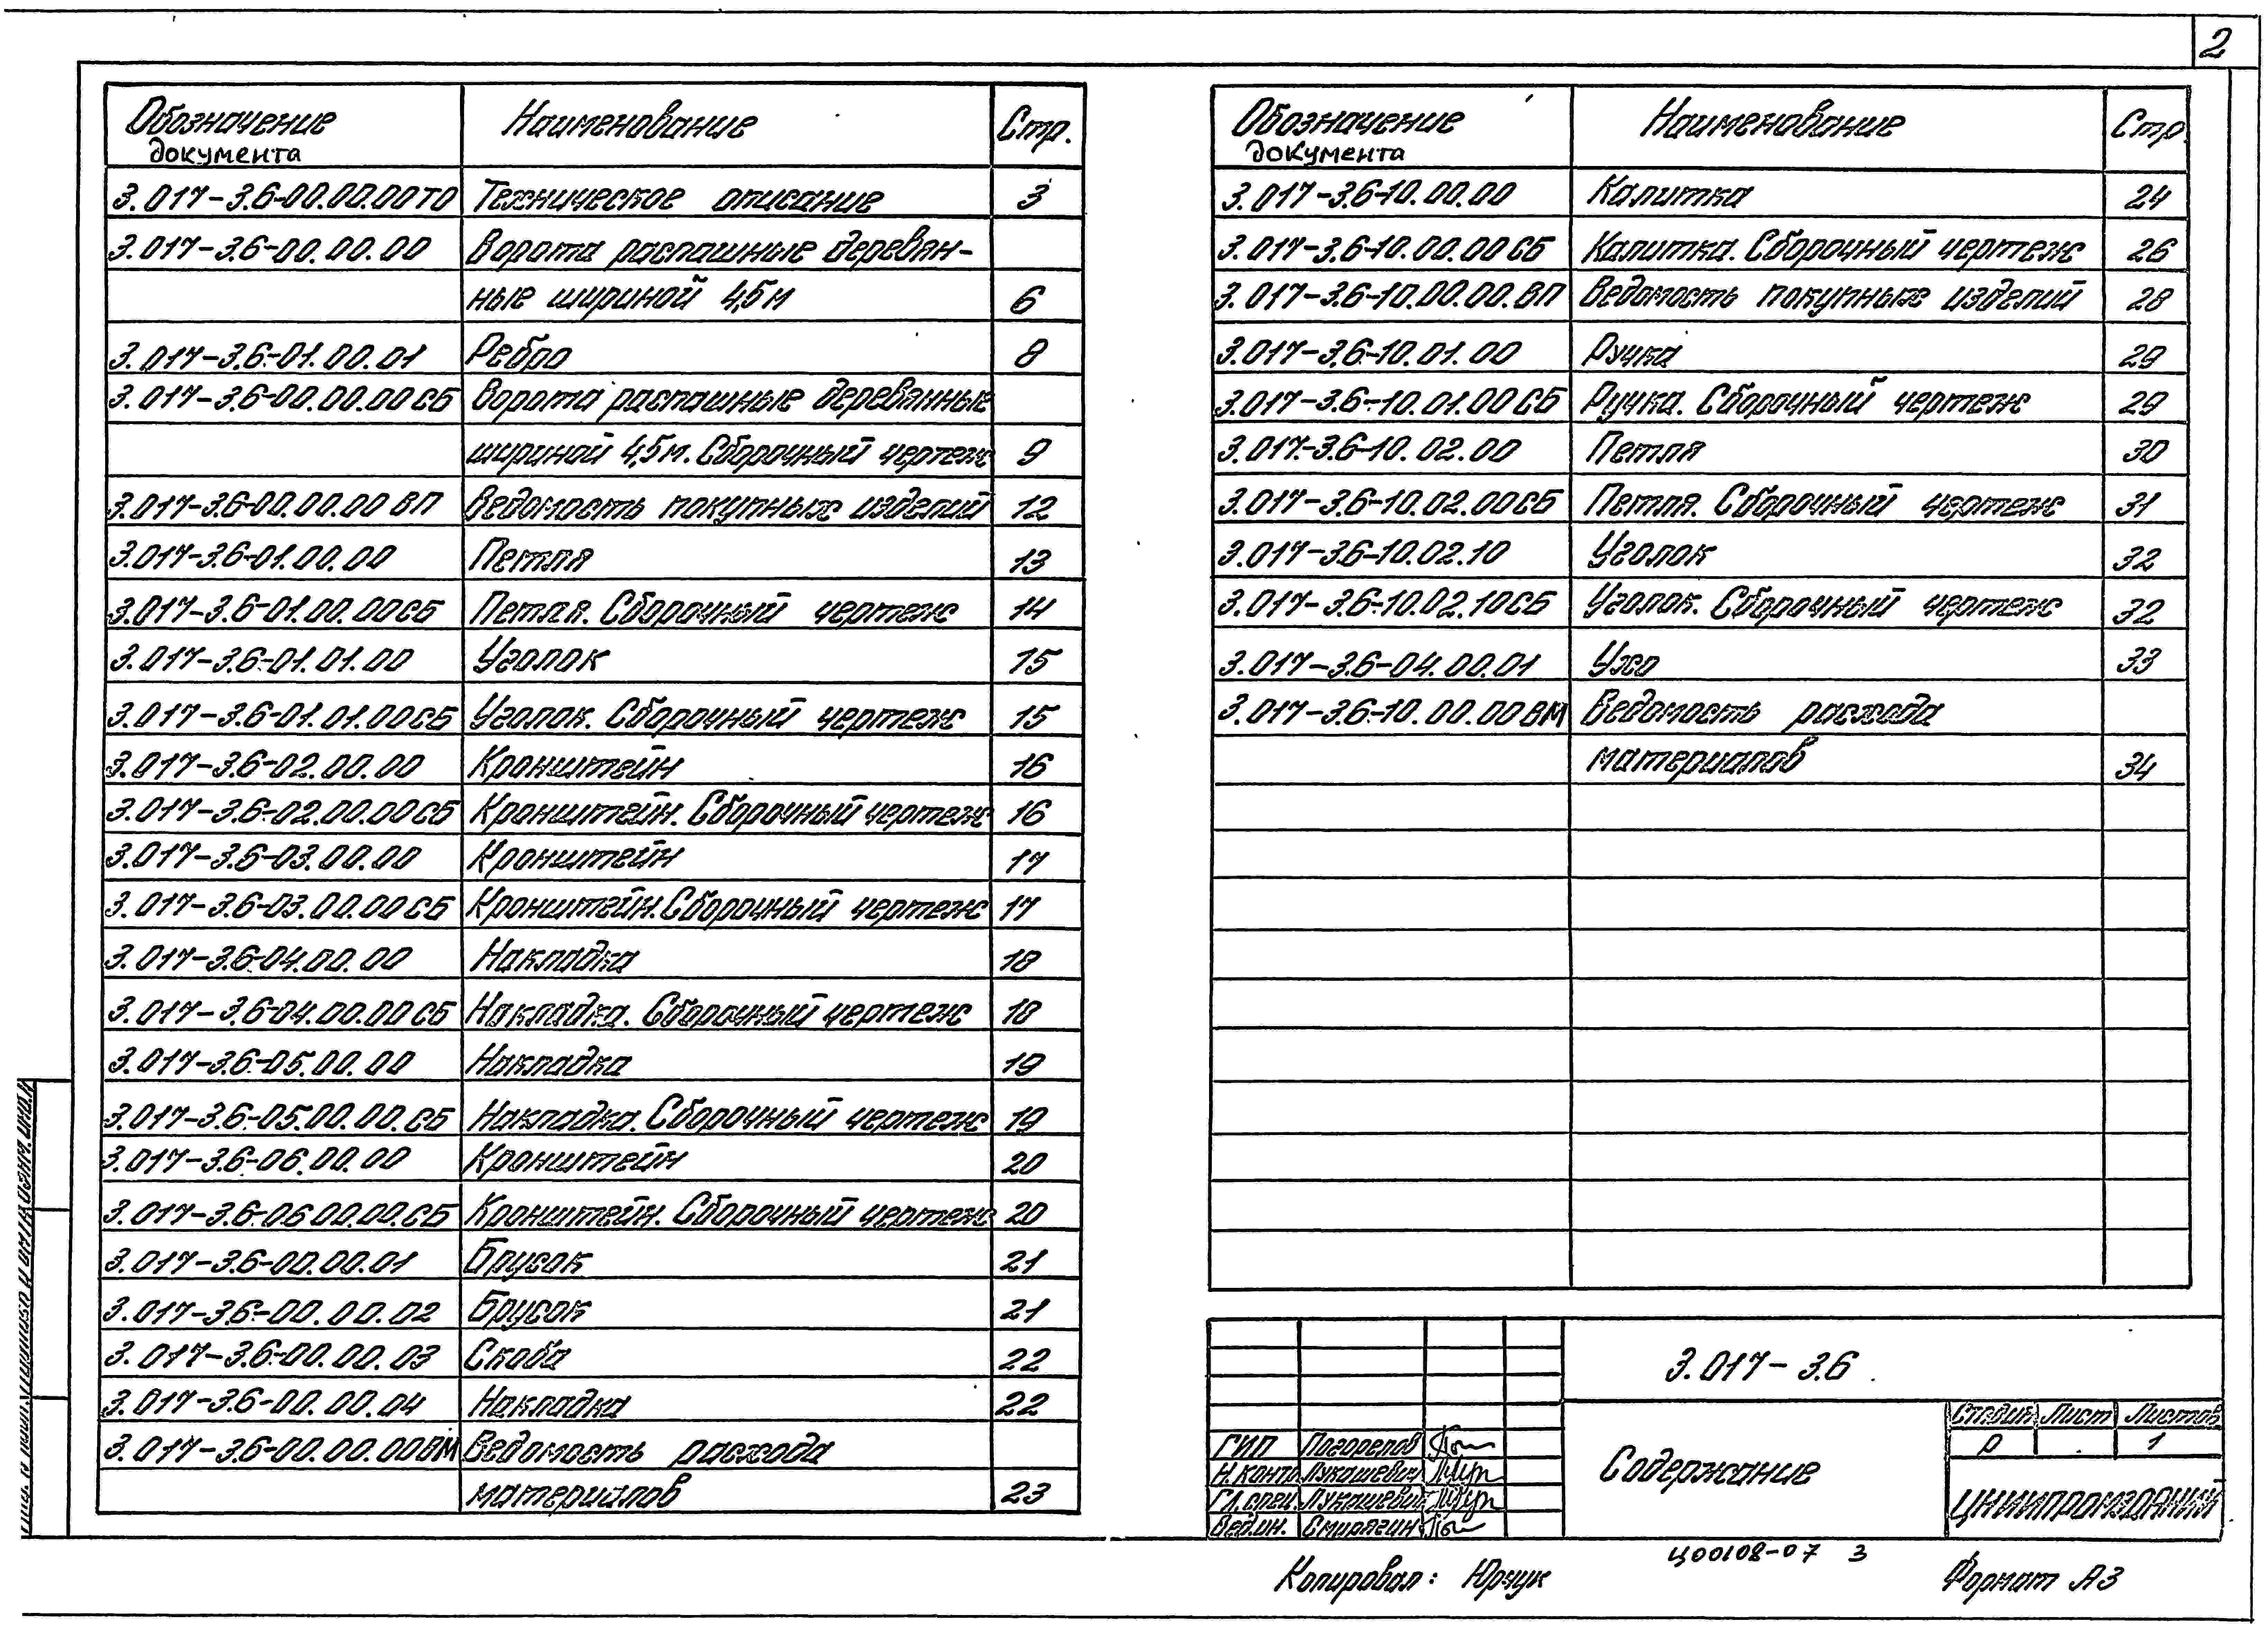 2
Обозначение документа Наименование Стр.
3.017-3.6-00.00.00ТО Техническое описание 3
3.017-3.6-00.00.00 Ворота распашные деревян-
ные шириной 4,5м 6
3.017-3.6-01.00.01 Ребро 8
3.017-3.6-00.00.00СБ Ворота распашные деревянные
шириной 4,5м. Сборочный чертеж 9
3.017-3.6-00.00.00 ВП Ведомость покупных изделий 12
3.017-3.6-01.00.00 Петля 13
3.017-3.6-01.00.00СБ Петля. Сборочный чертеж 14
3.017-3.6-01.01.00 Уголок 15
3.017-3.6-01.01.00СБ Уголок. Сборочный чертеж 15
3.017-3.6-02.00.00 Кронштейн 16
3.017-3.6-02.00.00СБ Кронштейн. Сборочный чертеж 16
3.017-3.6-03.00.00 Кронштейн 17
3.017-3.6-03.00.00СБ Кронштейн. Сборочный чертеж 17
3.017-3.6-04.00.00 Накладка 18
3.017-3.6-04.00.00СБ Накладка. Сборочный чертеж 18
3.017-3.6-05.00.00 Накладка 19
3.017-3.6-05.00.00.СБ Накладка. Сборочный чертеж 19
3.017-3.6-06.00.00 Кронштейн 20
3.017-3.6-06.00.00.СБ Кронштейн. Сборочный чертеж 20
3.017-3.6-00.00.01 Брусок 21
3.017-3.6-00.00.02 Брусок 21
3.017-3.6-00.00.03 Скоба 22
3.017-3.6-00.00.04 Накладка 22
3.017-3.6-00.00.00ВМ Ведомость расхода
материалов 23
Обозначение документа Наименование Стр.
3.017-3.6-10.00.00 Калитка 24
3.017-3.6-10.00.00СБ Калитка. Сборочный чертеж 26
3.017-3.6-10.00.00.ВП Ведомость покупных изделий 28
3.017-3.6-10.01.00 Ручка 29
3.017-3.6-10.01.00СБ Ручка. Сборочный чертеж 29
3.017-3.6-10.02.00 Петля 30
3.017-3.6-10.02.00СБ Петля. Сборочный чертеж 31
3.017-3.6-10.02.10 Уголок 32
3.017-3.6-10.02.10СБ Уголок. Сборочный чертеж 32
3.017-3.6-04.00.01 Ухо 33
3.017-3.6-10.00.00ВМ Ведомость расхода
материалов 34
3.017-3.6
Содержание
Стадия Лист Листов
Р 1
ЦНИИПРОМЗДАНИЙ
ГИП Погорелов
Н.контр Лукашевич
Гл.спец Лукашевич
Вед.ин. Смирягин
Ц00108-07 3
Копировал: Юрчук Формат А3